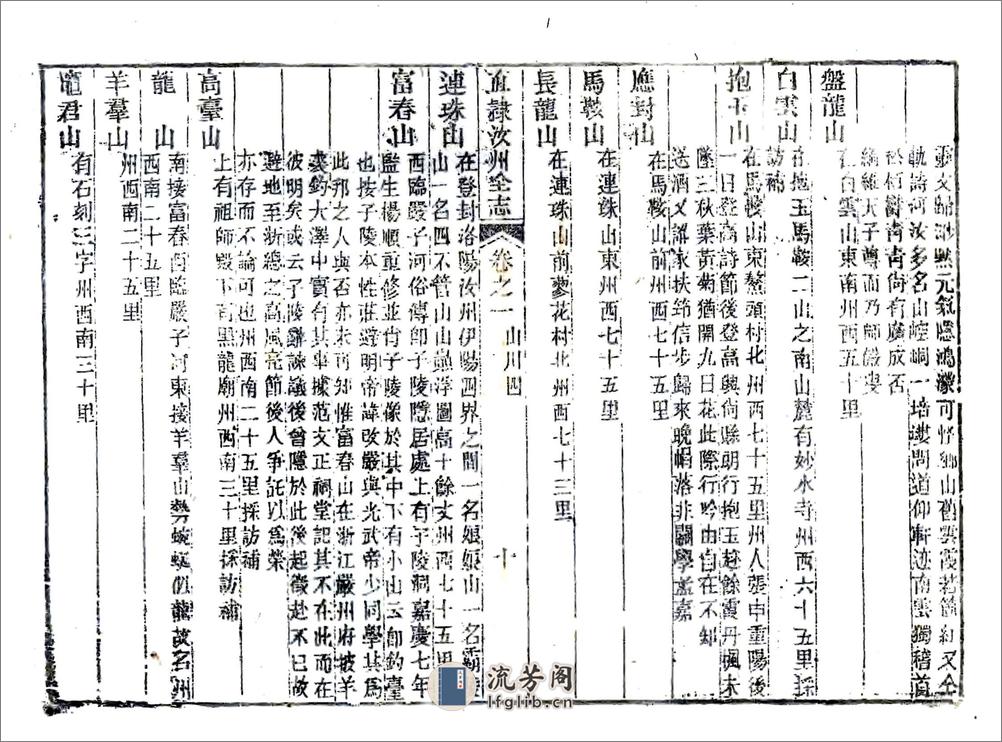 靈文歸渺默元氣隱鴻濛可怪鄉山舊雲霞若篋紅又全
軌詩河汝多名山崆峒一培塿問道仰軒迹南雲獨稽首
松栢鬱青青尚有廣成否
緬維天子尊而乃師臞叟
盤龍山
在白雲山東南州西五十里
白雲山
在抱玉馬鞍二山之南山麓有妙水寺州西六十五里採
訪補
抱玉山
在馬鞍山東鰲頭村北州西七十五里州人張申重陽後
一日登高詩節後登高興尚賒朝行抱玉趁餘霞丹楓未
墜三秋葉黃菊猶開九日花此際行吟由自在不知
送酒又誰家扶筇信步歸來晚帽落非關學孟嘉
應對山
在馬鞍山前州西七十五里
馬鞍山
在連珠山東州西七十五里
長龍山
在連珠山前蓼花村北州西七十三里
直隸汝州全志
卷之一
山川四
十
連珠山
在登封洛陽汝州伊陽四界之間一名娘娘山一名霸陵
山一名四不管山山巔浮圖高十餘丈州西七十五里
富春山
西臨嚴子河俗傳卽子陵隱居處上有子陵洞嘉慶七年
監生楊順重修並肖子陵像於其中下有小山云卽釣臺
也按子陵本性莊避明帝諱改嚴與光武帝少同學其為
此邦之人與否亦未可知惟富春山在浙江嚴州府披羊
裘釣大澤中實有其事據范文正祠堂記其不在此而在
彼明矣或云子陵辭諫議後曾隱於此後起徵赴不已故
避地至浙總之高風亮節後人爭託以為榮
亦存而不論可也州西南二十五里採訪補
高臺山
上有祖師殿下有黑龍廟州西南三十里採訪補
龍山
南接富春西臨嚴子河東接羊羣山勢蜿蜒似龍故名州
西南二十五里
羊羣山
州西南二十五里
竈君山
有石刻三字州西南三十里
流芳阁
lfglib.cn